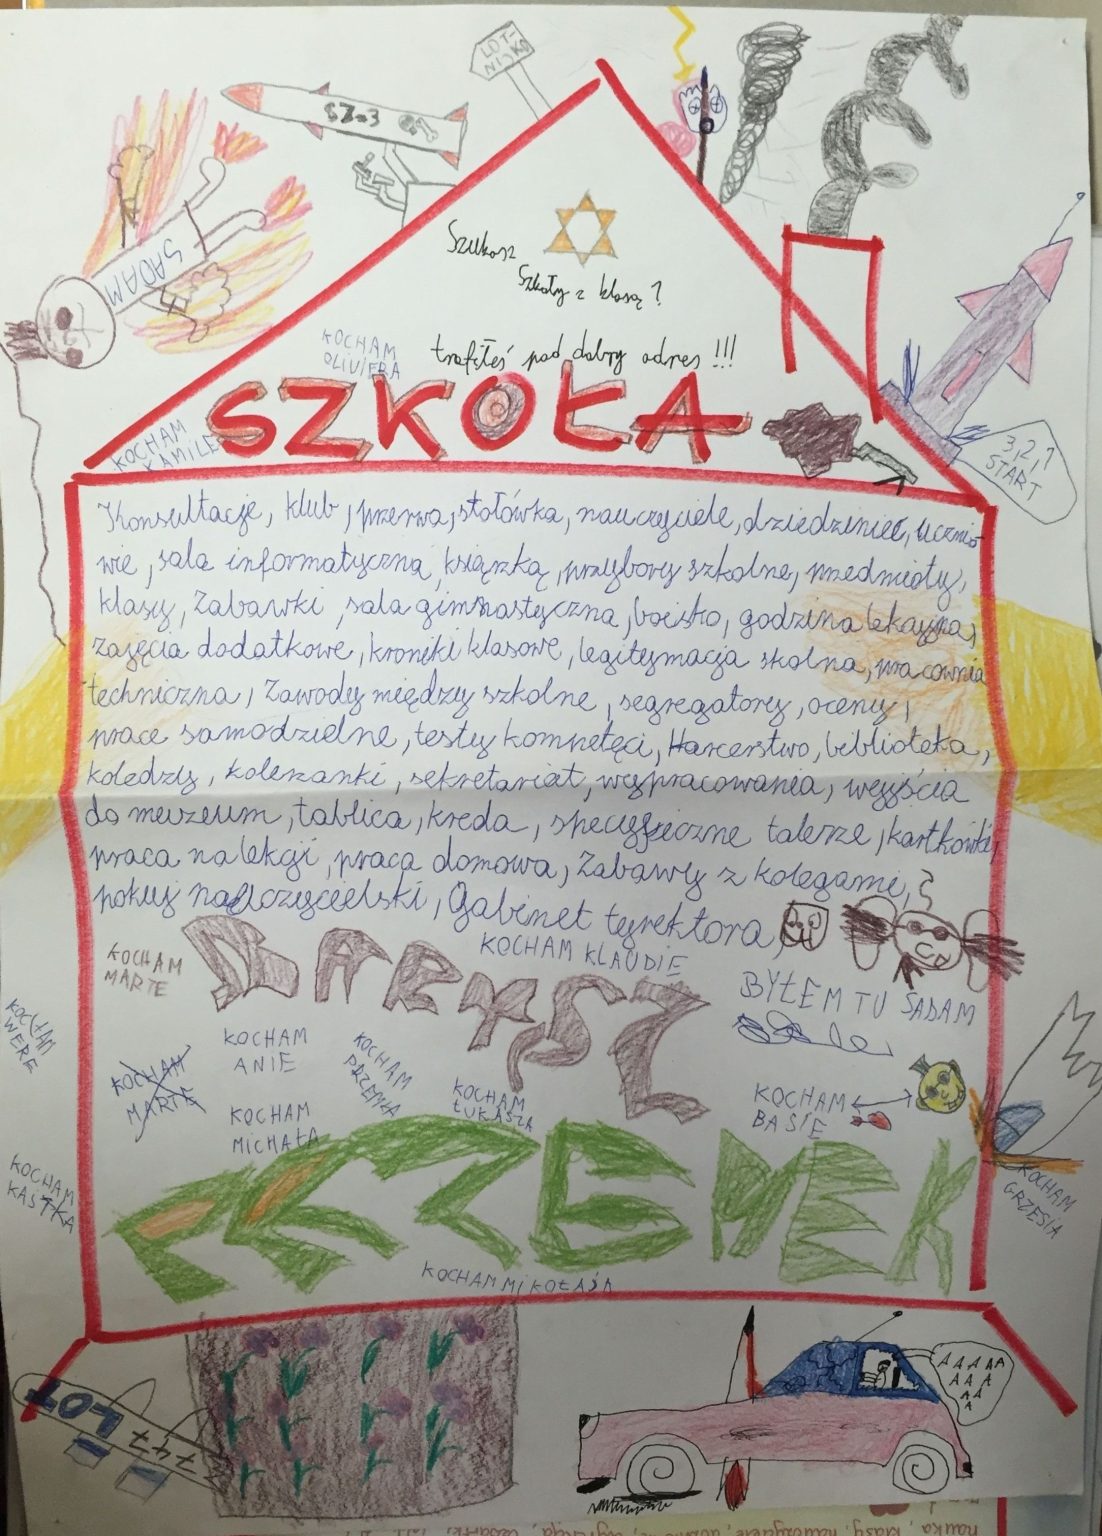 LOT-
NISKO
SZ-3
SADAM
Szukasz
Szkoły z klasą?
trafiłeś pod dobry adres!!!
KOCHAM
OLIVIERA
SZKOŁA
KOCHAM
KAMILE
3,2,1
START
Konsultacje, klub, przerwa, stołówka, nauczyciele, dziedziniec, ucznio-
wie, sala informatyczna, książką, przybory szkolne, przedmioty,
klasy, Zabawki, sala gimnastyczna, boisko, godzina lekcyjna,
zajęcia dodatkowe, kroniki klasowe, legitymacja skolna, pracownia
techniczna, Zawody między szkolne, segregatory, oceny,
prace samodzielne, testy kompetęci, Harcerstwo, biblioteka,
koledzy, koleżanki, sekretariat, wypracowania, wyjścia
do muzeum, tablica, kreda, specyficzne talerze, kartkówki,
praca na lekcji, praca domowa, Zabawy z kolegami,
pokuj nauczycielski, Gabinet tyrektora,
KOCHAM
MARTE
BARYSZ
KOCHAM KLAUDIĘ
BYŁEM TU SADAM
KOCHAM
WERE
KOCHAM
MARTE
KOCHAM
ANIE
KOCHAM
PRZEMKA
KOCHAM
MICHAŁA
KOCHAM
ŁUKASZA
KOCHAM
BASIE
KOCHAM
KAŚTKA
KOCHAM
GRZESIA
PRZEMEK
KOCHAM MIKOŁAJA
LOT
747
A A A AA
A A A
A A
A